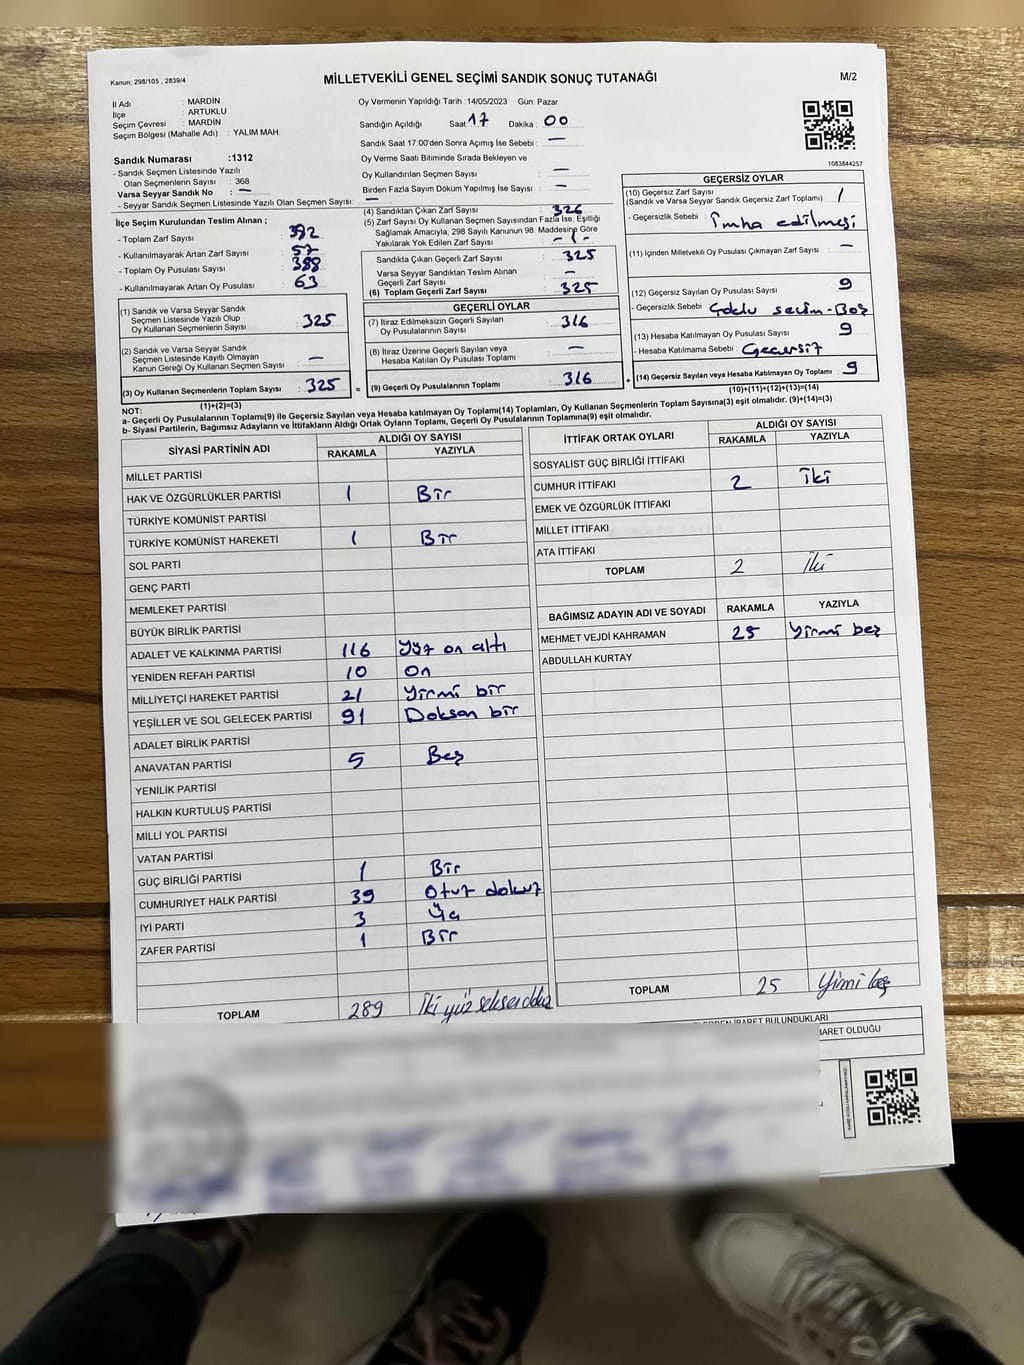 Kanun; 298/105 , 2839/4
MİLLETVEKİLİ GENEL SEÇİMİ SANDIK SONUÇ TUTANAĞI
M/2
İl Adı : MARDİN
İlçe : ARTUKLU
Seçim Çevresi : MARDİN
Seçim Bölgesi (Mahalle Adı) : YALIM MAH.
Sandık Numarası :1312
- Sandık Seçmen Listesinde Yazılı
Olan Seçmenlerin Sayısı : 368
Varsa Seyyar Sandık No : —
- Seyyar Sandık Seçmen Listesinde Yazılı Olan Seçmen Sayısı: —
Oy Vermenin Yapıldığı Tarih :14/05/2023 Gün: Pazar
Sandığın Açıldığı Saat: 17 Dakika : 00
Sandık Saat 17:00'den Sonra Açımış İse Sebebi : —
Oy Verme Saati Bitiminde Sırada Bekleyen ve
Oy Kullandırılan Seçmen Sayısı : —
Birden Fazla Sayım Döküm Yapılmış İse Sayısı : —
1083844257
İlçe Seçim Kurulundan Teslim Alınan ;
- Toplam Zarf Sayısı : 392
- Kullanılmayarak Artan Zarf Sayısı : 57
- Toplam Oy Pusulası Sayısı : 388
- Kullanılmayarak Artan Oy Pusulası : 63
(1) Sandık ve Varsa Seyyar Sandık
Seçmen Listesinde Yazılı Olup
Oy Kullanan Seçmenlerin Sayısı : 325
(2) Sandık ve Varsa Seyyar Sandık
Seçmen Listesinde Kayıtlı Olmayan
Kanun Gereği Oy Kullanan Seçmen Sayısı : —
(3) Oy Kullanan Seçmenlerin Toplam Sayısı : 325 =
(1)+(2)=(3)
(4) Sandıktan Çıkan Zarf Sayısı : 326
(5) Zarf Sayısı Oy Kullanan Seçmen Sayısından Fazla İse, Eşitliği
Sağlamak Amacıyla, 298 Sayılı Kanunun 98. Maddesine Göre
Yakılarak Yok Edilen Zarf Sayısı : -1-
Sandıkta Çıkan Geçerli Zarf Sayısı : 325
Varsa Seyyar Sandıktan Teslim Alınan
Geçerli Zarf Sayısı : —
(6) Toplam Geçerli Zarf Sayısı : 325
GEÇERLİ OYLAR
(7) İtiraz Edilmeksizin Geçerli Sayılan
Oy Pusulalarının Sayısı : 316
(8) İtiraz Üzerine Geçerli Sayılan veya
Hesaba Katılan Oy Pusulası Toplamı : —
(9) Geçerli Oy Pusulalarının Toplamı : 316 +
GEÇERSİZ OYLAR
(10) Geçersiz Zarf Sayısı : 1
(Sandık ve Varsa Seyyar Sandık Geçersiz Zarf Toplamı)
- Geçersizlik Sebebi : imha edilmesi
(11) İçinden Milletvekili Oy Pusulası Çıkmayan Zarf Sayısı : —
(12) Geçersiz Sayılan Oy Pusulası Sayısı : 9
- Geçersizlik Sebebi : Çoklu seçim-Boş
(13) Hesaba Katılmayan Oy Pusulası Sayısı : 9
- Hesaba Katılmama Sebebi : Geçersiz
(14) Geçersiz Sayılan veya Hesaba Katılmayan Oy Toplamı : 9
(10)+(11)+(12)+(13)=(14)
NOT:
a- Geçerli Oy Pusulalarının Toplamı(9) ile Geçersiz Sayılan veya Hesaba katılmayan Oy Toplamı(14) Toplamları, Oy Kullanan Seçmenlerin Toplam Sayısına(3) eşit olmalıdır. (9)+(14)=(3)
b- Siyasi Partilerin, Bağımsız Adayların ve İttifakların Aldığı Ortak Oyların Toplamı, Geçerli Oy Pusulalarının Toplamına(9) eşit olmalıdır.
SİYASİ PARTİNİN ADI ALDIĞI OY SAYISI
RAKAMLA YAZIYLA
MİLLET PARTİSİ
HAK VE ÖZGÜRLÜKLER PARTİSİ 1 Bir
TÜRKİYE KOMÜNİST PARTİSİ
TÜRKİYE KOMÜNİST HAREKETİ 1 Bir
SOL PARTİ
GENÇ PARTİ
MEMLEKET PARTİSİ
BÜYÜK BİRLİK PARTİSİ
ADALET VE KALKINMA PARTİSİ 116 Yüz on altı
YENİDEN REFAH PARTİSİ 10 On
MİLLİYETÇİ HAREKET PARTİSİ 21 Yirmi bir
YEŞİLLER VE SOL GELECEK PARTİSİ 91 Doksan bir
ADALET BİRLİK PARTİSİ
ANAVATAN PARTİSİ 5 Beş
YENİLİK PARTİSİ
HALKIN KURTULUŞ PARTİSİ
MİLLİ YOL PARTİSİ
VATAN PARTİSİ
GÜÇ BİRLİĞİ PARTİSİ 1 Bir
CUMHURİYET HALK PARTİSİ 39 Otuz dokuz
İYİ PARTİ 3 Üç
ZAFER PARTİSİ 1 Bir
TOPLAM 289 İki yüz
İTTİFAK ORTAK OYLARI ALDIĞI OY SAYISI
RAKAMLA YAZIYLA
SOSYALİST GÜÇ BİRLİĞİ İTTİFAKI
CUMHUR İTTİFAKI 2 İki
EMEK VE ÖZGÜRLÜK İTTİFAKI
MİLLET İTTİFAKI
ATA İTTİFAKI
TOPLAM 2 İki
BAĞIMSIZ ADAYIN ADI VE SOYADI RAKAMLA YAZIYLA
MEHMET VEJDİ KAHRAMAN 25 Yirmi beş
ABDULLAH KURTAY
TOPLAM 25 Yimi beş
BULUNDUKLARI
OLDUĞU